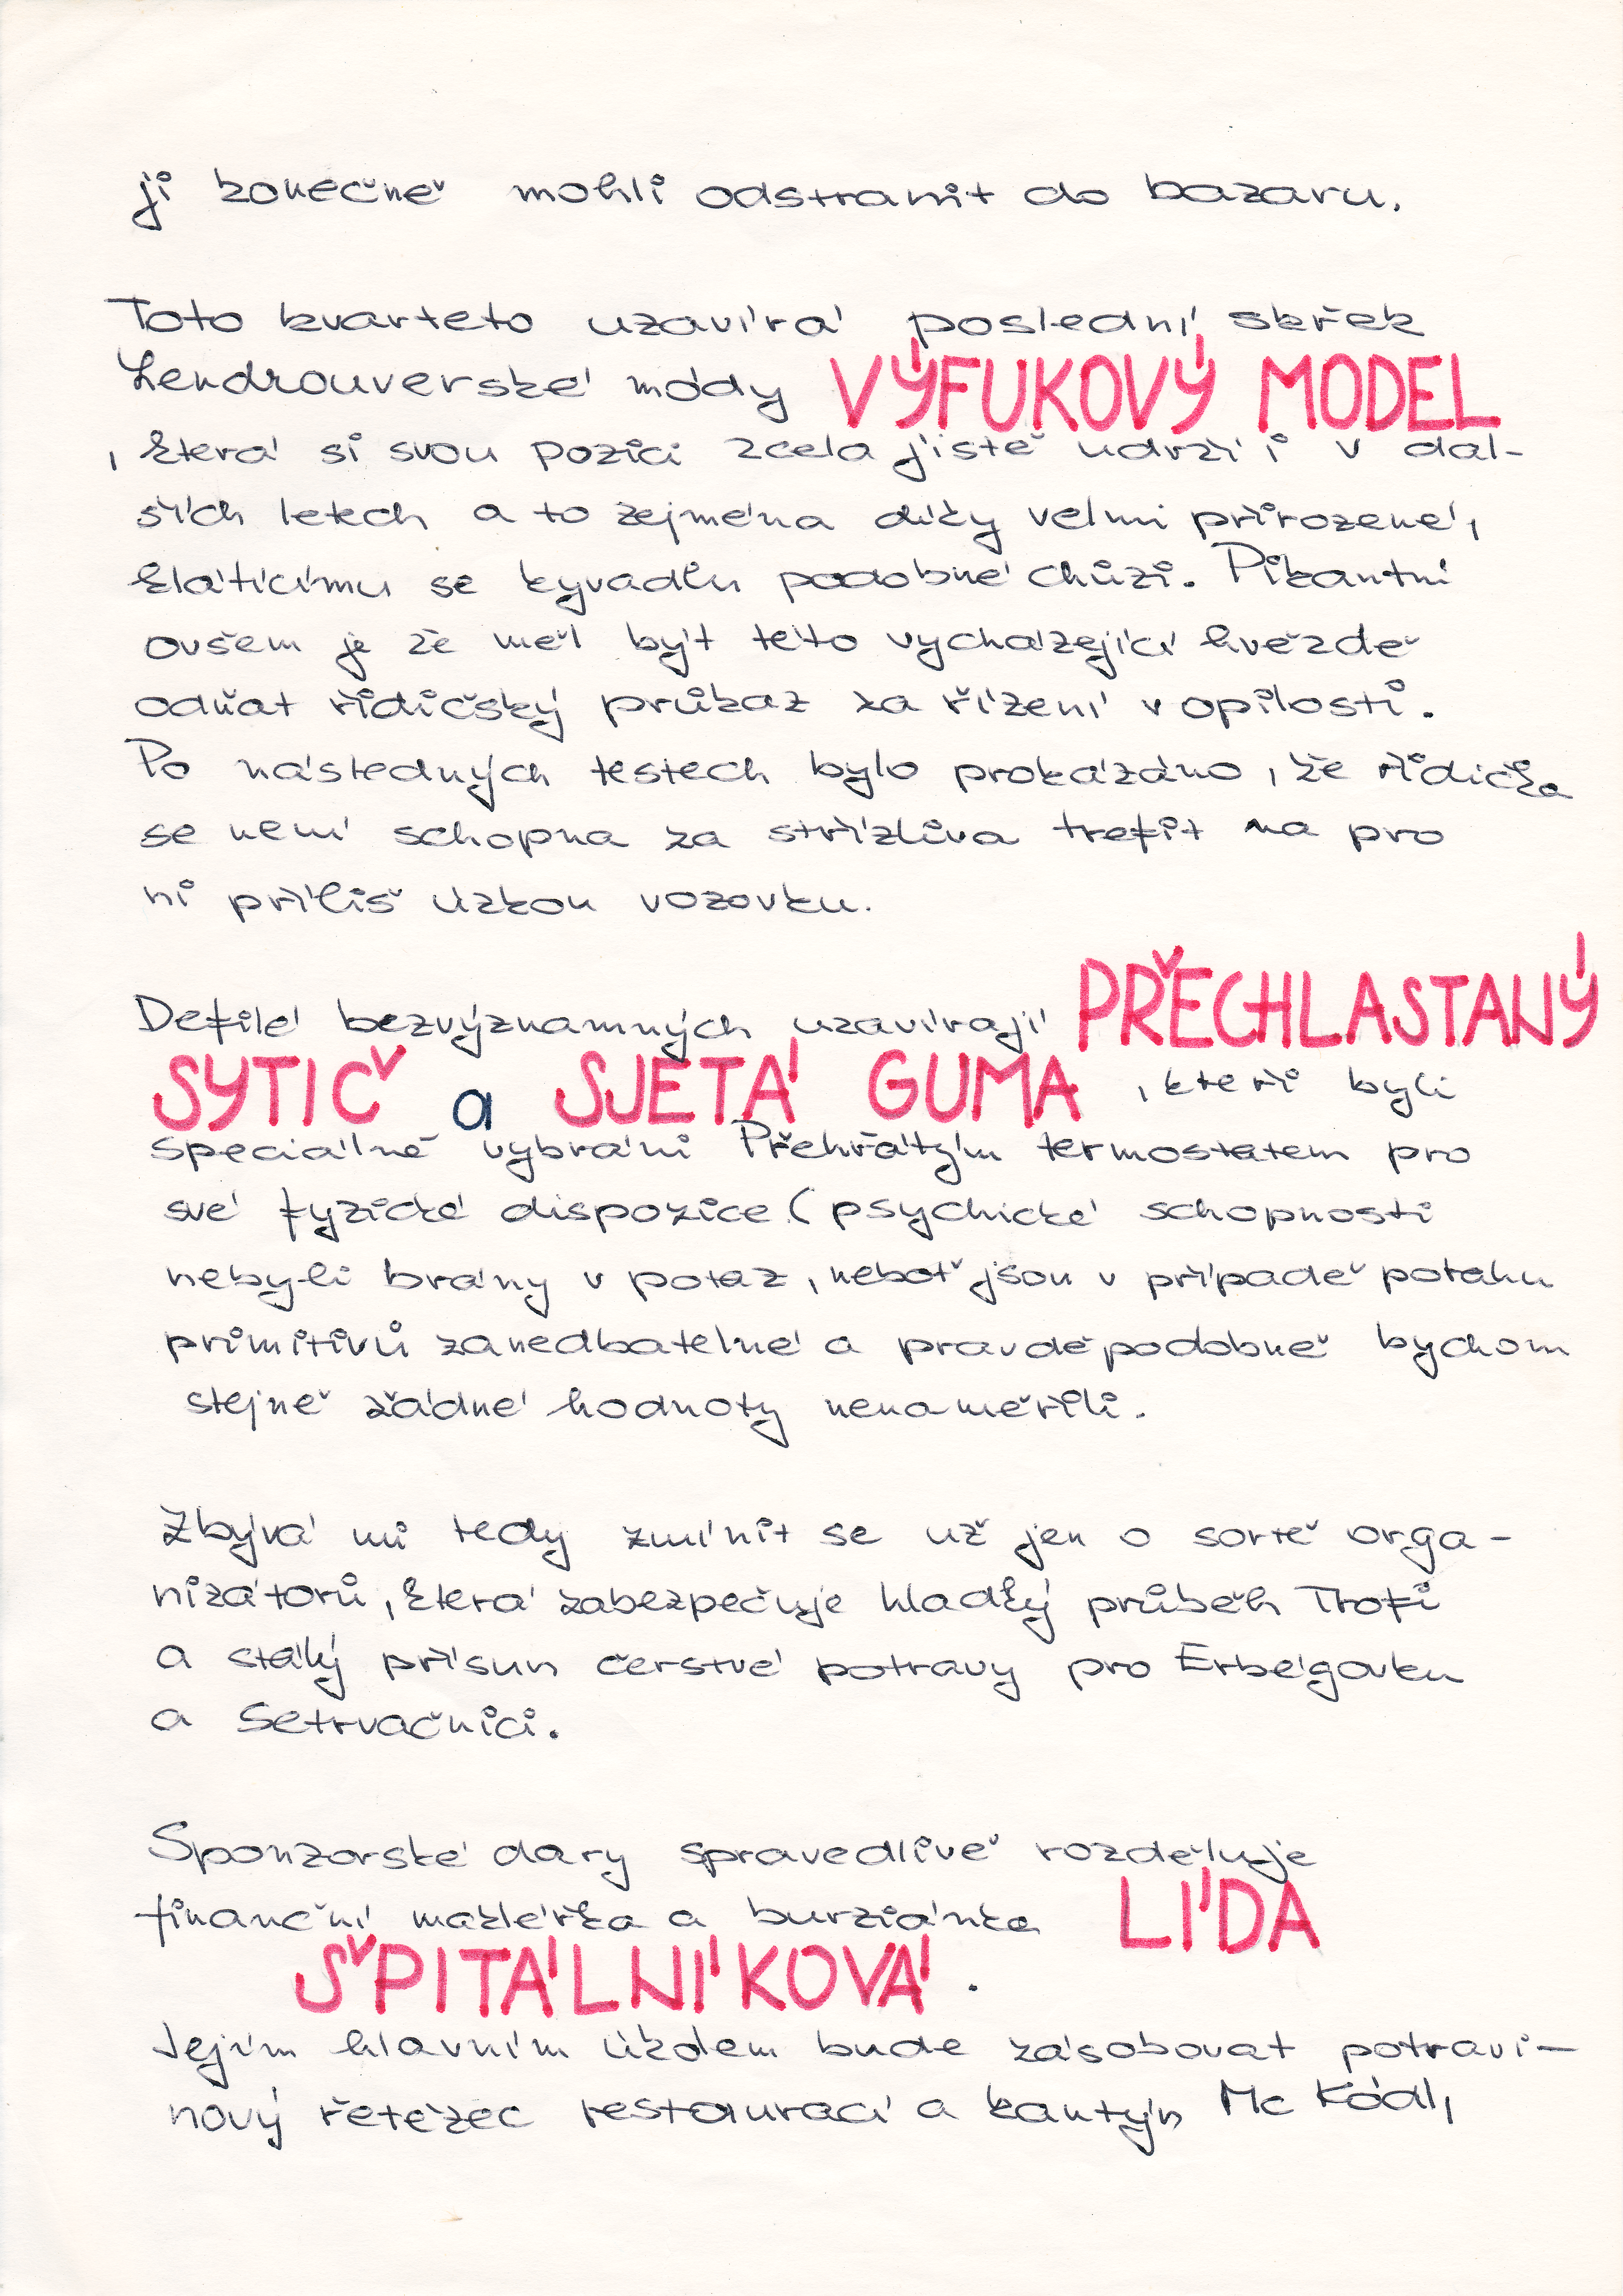 ji konečně mohli odstranit do bazaru.
Toto kvarteto uzavírá poslední skřek
Lendrouverské módy VÝFUKOVÝ MODEL
, která si svou pozici zcela jistě udrží i v dal-
ších letech a to zejména díky velmi přirozené,
klátícímu se kyvadlu podobné chůzi. Pikantní
ovšem je že měl být této vycházející hvězdě
odňat řidičský průkaz za řízení v opilosti.
Po následných testech bylo prokázáno, že řidička
se není schopna za střízliva trefit na pro
ni příliš úzkou vozovku.
Defilé bezvýznamných uzavírají PŘECHLASTANÝ
SYTIČ a SJETÁ GUMA , kteří byli
speciálně vybráni Přehřátým termostatem pro
své fyzické dispozice (psychické schopnosti
nebyli brány v potaz, neboť jsou v případě potahu
primitivů zanedbatelné a pravděpodobně bychom
stejně žádné hodnoty nenaměřili.
Zbývá mi tedy zmínit se už jen o sortě orga-
nizátorů, která zabezpečuje hladký průběh Trofi
a stálý přísun čerstvé potravy pro Erbégovku
a Setrvačnici.
Sponzorské dary spravedlivě rozděluje
finanční makléřka a burziánka LÍDA
ŠPITÁLNÍKOVÁ .
Jejím hlavním úkolem bude zásobovat potravi-
nový řetězec restaurací a kantýn Mc Kódl,